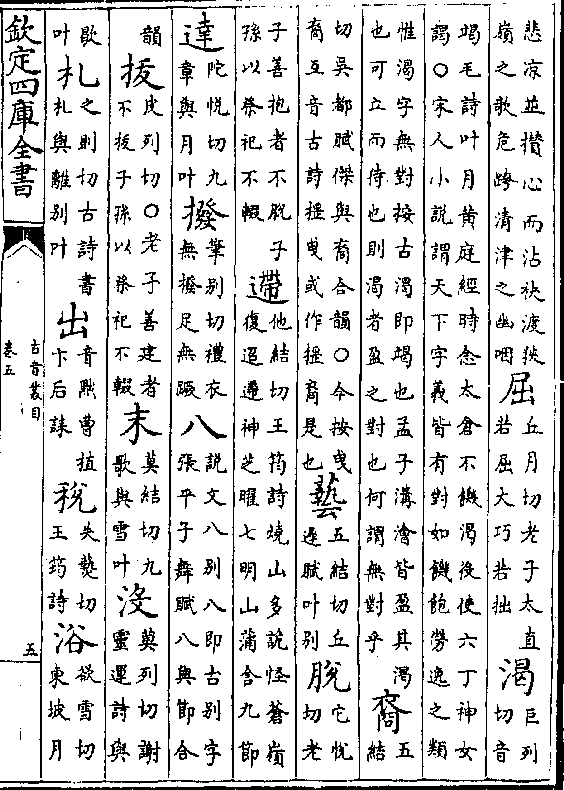 悲凉並攢心而沾袂渡狹嶺之歌危蹕清津之幽咽屈丘月切老子太直若屈大巧若拙渴巨列切音
竭毛詩叶月黃庭經時念太倉不饑渴役使六丁神女謁○宋人小說謂天下字義皆有對如饑飽勞逸之類
惟渴字無對按古渴即竭也孟子溝澮皆盈其渴也可立而待也則渴者盈之對也何謂無對乎裔五結
切吳都賦傑與裔合韻○今按曳裔互音古詩搖曳或作搖裔是也藝五結切丘遲賦叶別脫它悅切老
子善抱者不脫子孫以祭祀不輟遰他結切王筠詩燒山多詭怪蒼嶺復迢遰神芝曜七明山蒲含九節
達陀悅切九章與月叶撥筆別切禮衣無撥足無蹶八說文八別八即古別字張平子舞賦八與節合
韻拔皮列切○老子善建者不拔子孫以祭祀不輟末莫結切九歌與雪叶沒莫列切謝靈運詩與
歇叶札之則切古詩書札與離別叶出音黜曹植卞后誄稅失爇切王筠詩浴欲雪切東坡月
欽定四庫全書
古音叢目
卷五
五